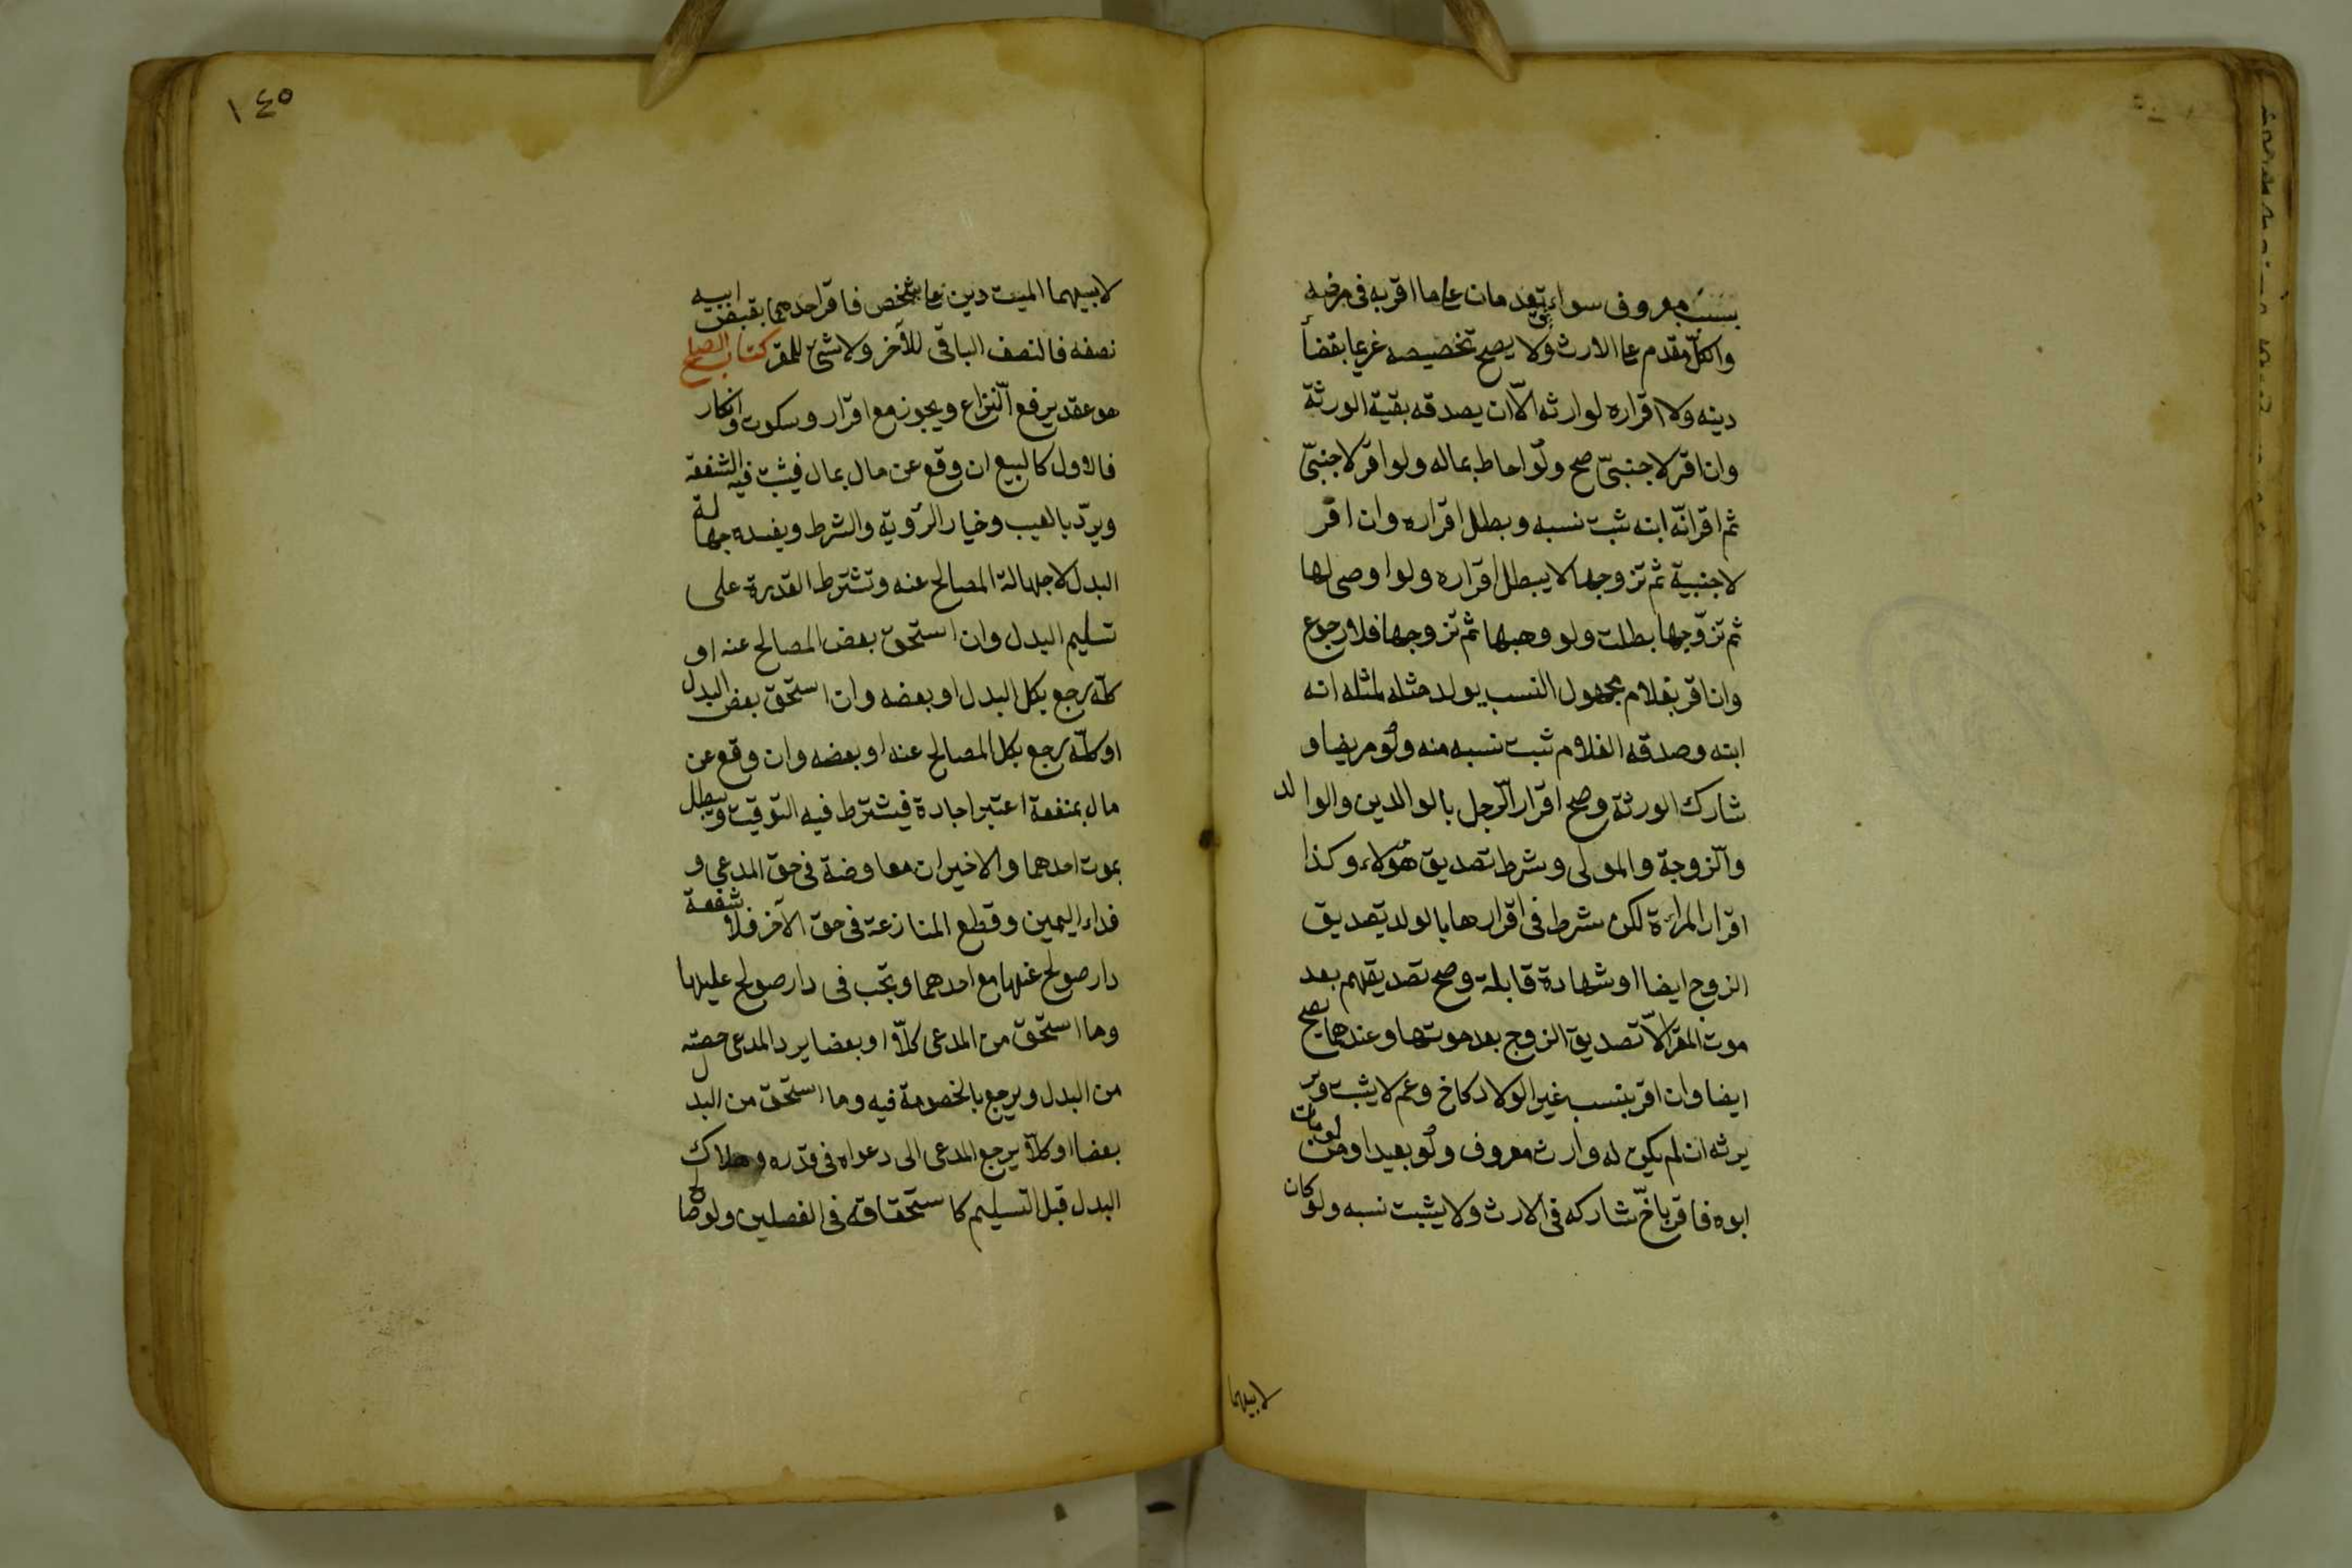 بسبب معروف سواء ويقدمان على ما اقر به فى مرضه
والكلّ مقدم على الارث ولا يصح تخصيصه غريما بقضأ
دينه ولا اقراره لوارثه الّا ان يصدقه بقية الورثة
وان اقر لاجنبىّ صح ولو احاط بماله ولو اقر لاجنبىّ
ثم اقر انّه ابنه ثبت نسبه وبطل اقراره وان اقر
لاجنبية ثم تزوجها لا يبطل اقراره ولو اوصى لها
ثم تزوّجها بطلت ولو وهبها ثم تزوجها فلا رجوع
وان اقر بغلام مجهول النسب يولد مثله لمثله انه
ابنه وصدقه الغلام ثبت نسبه منه ولو مريضا و
شارك الورثة وصح اقرار الرّجل بالوالدين والوالد
والزوجة والمولى وشرط تصديق هؤلاء وكذا
اقرار المرأة لكن شرط فى اقرارها بالولد تصديق
الزوج ايضا او شهادة قابلة وصح تصديقهم بعد
موت المقر الّا تصديق الزوج بعد موتها وعندهما يصح
ايضا وان اقر بنسب غير الولاد كاخ وعم لا يثبت و
يرثه ان لم يكن له وارث معروف ولو بعيدا ومن مات
ابوه فاقر باخّ شاركه فى الارث ولا يثبت نسبه ولو كان
لابيهما
١٤٥
لابيهما الميت دين على شخص فاقر احدهما بقبض ابيه
نصفه فالنصف الباقى للآخر ولا شئ للمقر كتاب الصلح
هو عقد يرفع النّزاع ويجوز مع اقرار وسكوت وانكار
فالاول كالبيع ان وقع عن مال بمال فيثبت فيه الشفعة
ويردّ بالعيب وخيار الرّؤية والشرط ويفسده جهالة
البدل لا جهالة المصالح عنه وتشترط القدرة على
تسليم البدل وان استحق بعض المصالح عنه او
كلّه رجع بكل البدل او بعضه وان استحق بعض البدل
او كلّه رجع بكل المصالح عنه او بعضه وان وقع عن
مال بمنفعة اعتبر اجارة فيشترط فيه التوقيت ويبطل
بموت احدهما والاخيران معاوضة فى حق المدعى و
فداء اليمين وقطع المنازعة فى حق الآخر فلا شفعة
دار صولح عنها مع احدهما وتجب فى دار صولح عليها
وما استحق من المدعى كلّا او بعضا يرد المدعى حصته
من البدل ويرجع بالخصومة فيه وما استحق من البدل
بعضا او كلّا يرجع المدعى الى دعواه فى قدره وهلاك
البدل قبل التسليم كاستحقاقه فى الفصلين ولو صالح